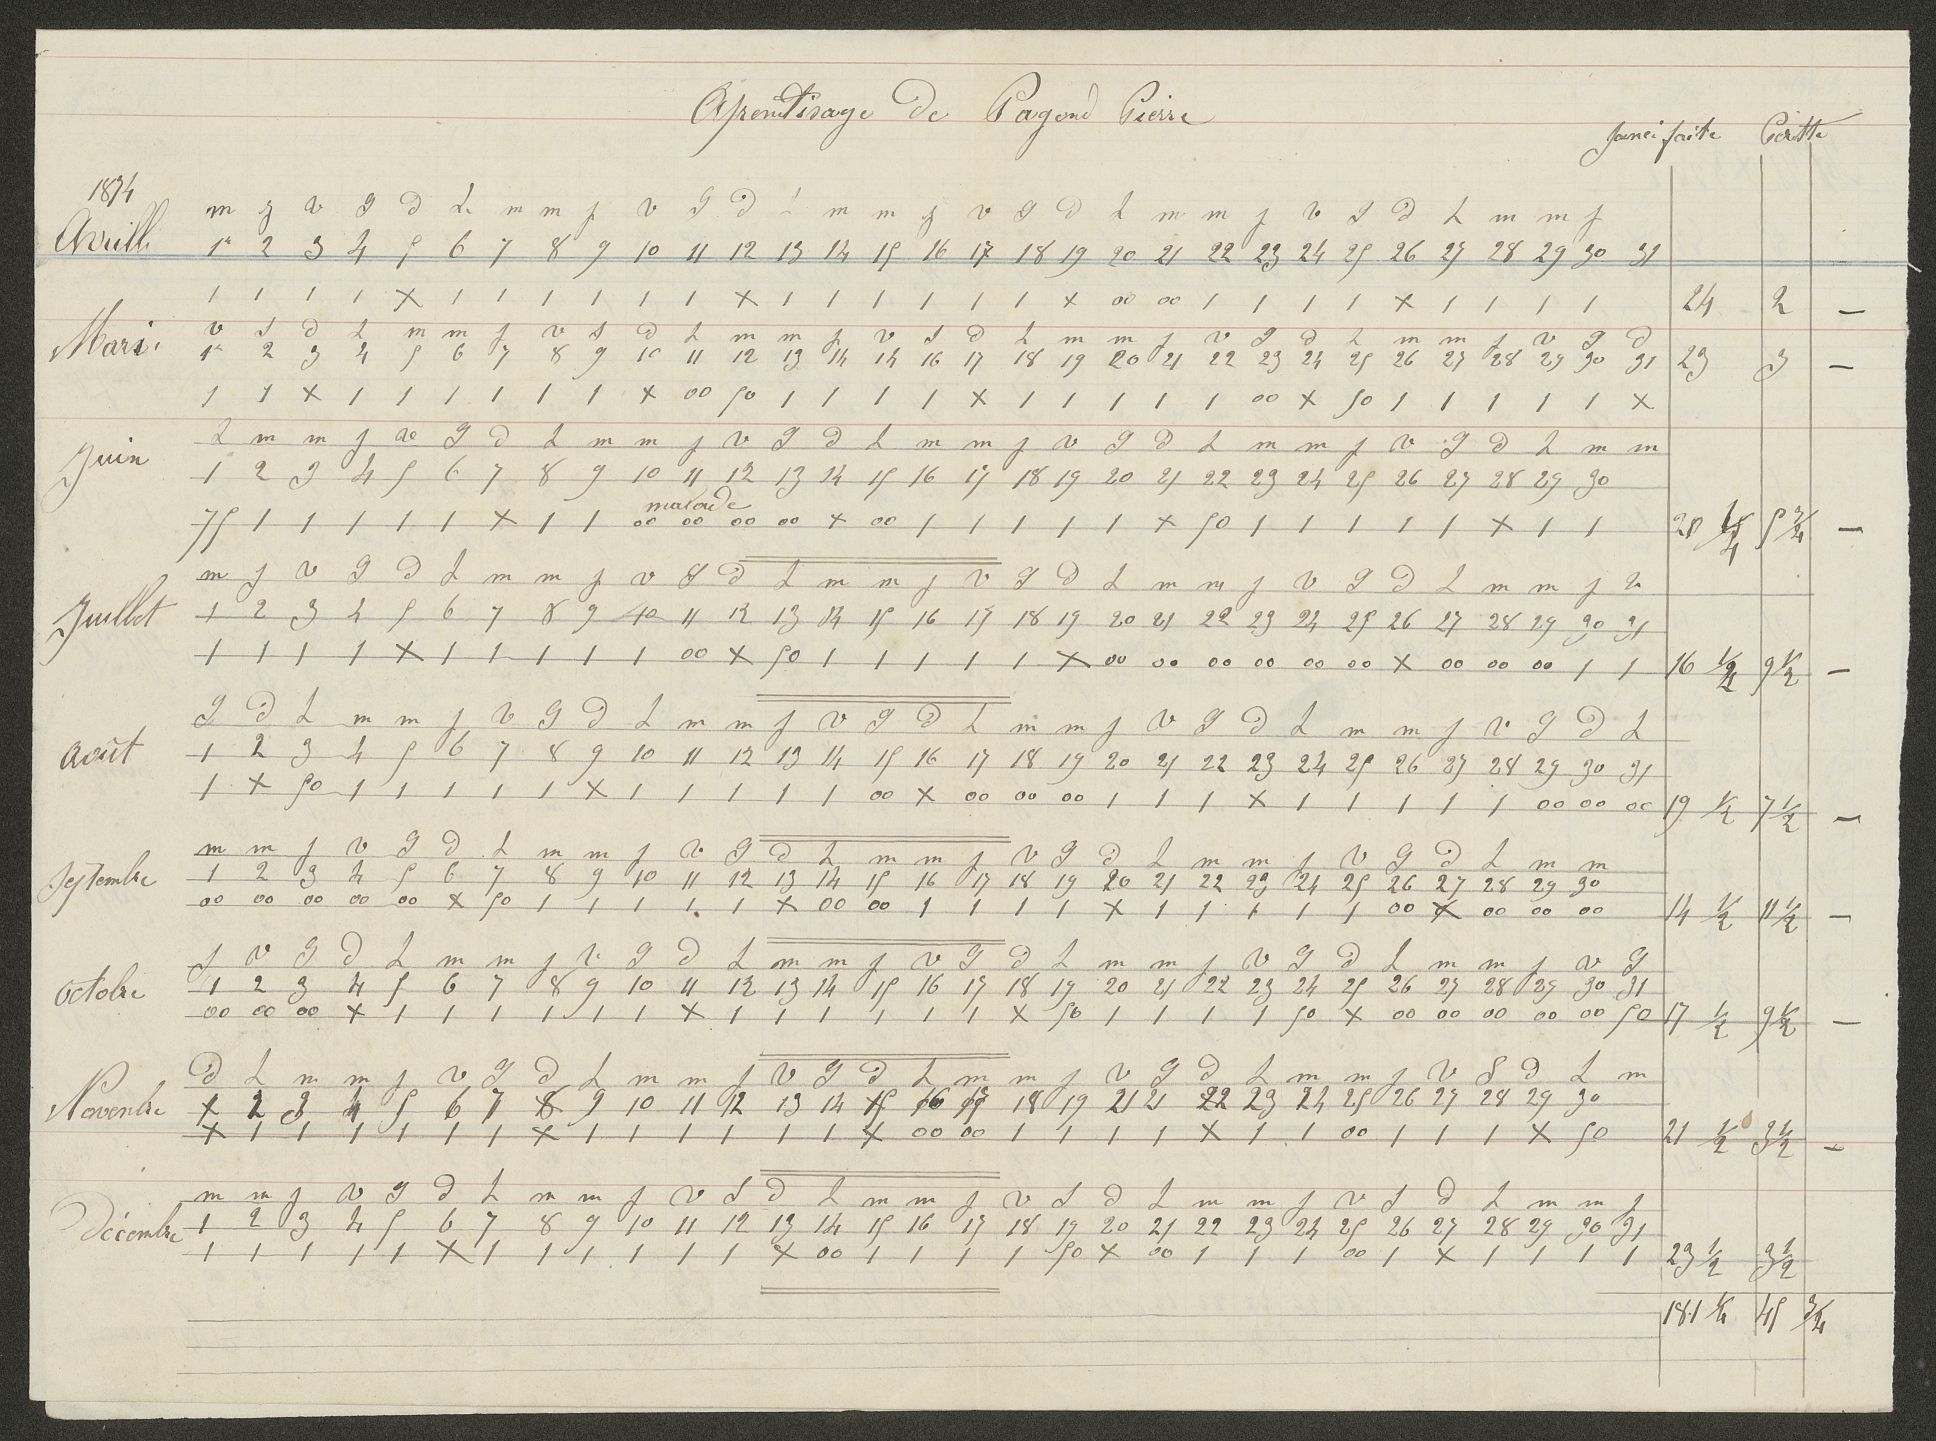 Aprentisage de Pagend Pierre
Journei faite Pertte
1874
m j v S d L m m j v S d L m m j v S d L m m j v S d L m m j
Avrill 1er 2 3 4 5 6 7 8 9 10 11 12 13 14 15 16 17 18 19 20 21 22 23 24 25 26 27 28 29 30 31
1 1 1 1 X 1 1 1 1 1 1 X 1 1 1 1 1 1 X 00 00 1 1 1 1 X 1 1 1 1 24 2 —
v S d L m m j v S d L m m j v S d L m m j v S d L m m j v S d
Mars 1er 2 3 4 5 6 7 8 9 10 11 12 13 14 14 16 17 18 19 20 21 22 23 24 25 26 27 28 29 30 31 23 3 —
1 1 X 1 1 1 1 1 1 X 00 50 1 1 1 1 X 1 1 1 1 1 00 X 50 1 1 1 1 1 X
L m m j v S d L m m j v S d L m m j v S d L m m j v S d L m m
Juin 1 2 3 4 5 6 7 8 9 10 11 12 13 14 15 16 17 18 19 20 21 22 23 24 25 26 27 28 29 30
malade
75 1 1 1 1 1 X 1 1 00 00 00 00 X 00 1 1 1 1 1 X 50 1 1 1 1 1 X 1 1 20 1/4 5 3/4 —
m j v S d L m m j v S d L m m j v S d L m m j v S d L m m j v
Juillet 1 2 3 4 5 6 7 8 9 10 11 12 13 14 15 16 17 18 19 20 21 22 23 24 25 26 27 28 29 30 31
1 1 1 1 X 1 1 1 1 1 00 X 50 1 1 1 1 1 X 00 00 00 00 00 00 X 00 00 00 1 1 16 1/2 9 1/2 —
S d L m m j v S d L m m j v S d L m m j v S d L m m j v S d L
Août 1 2 3 4 5 6 7 8 9 10 11 12 13 14 15 16 17 18 19 20 21 22 23 24 25 26 27 28 29 30 31
1 X 50 1 1 1 1 1 X 1 1 1 1 1 00 X 00 00 00 1 1 1 X 1 1 1 1 1 00 00 00 19 1/2 7 1/2 —
m m j v S d L m m j v S d L m m j v S d L m m j v S d L m m
Septembre 1 2 3 4 5 6 7 8 9 10 11 12 13 14 15 16 17 18 19 20 21 22 23 24 25 26 27 28 29 30
00 00 00 00 00 X 50 1 1 1 1 1 X 00 00 1 1 1 1 X 1 1 1 1 1 00 X 00 00 00 14 1/2 11 1/2 —
j v S d L m m j v S d L m m j v S d L m m j v S d L m m j v S
Octobre 1 2 3 4 5 6 7 8 9 10 11 12 13 14 15 16 17 18 19 20 21 22 23 24 25 26 27 28 29 30 31
00 00 00 X 1 1 1 1 1 1 X 1 1 1 1 1 1 X 50 1 1 1 1 50 X 00 00 00 00 00 50 17 1/2 9 1/2 —
D L m m j v S d L m m j v S d L m m j v S d L m m j v S d L m
Novembre 1 2 3 4 5 6 7 8 9 10 11 12 13 14 15 16 17 18 19 21 21 22 23 24 25 26 27 28 29 30
X 1 1 1 1 1 1 X 1 1 1 1 1 1 X 00 00 1 1 1 1 X 1 1 00 1 1 1 X 50 21 1/2 3 1/2 —
m m j v S d L m m j v S d L m m j v S d L m m j v S d L m m j
Décembre 1 2 3 4 5 6 7 8 9 10 11 12 13 14 15 16 17 18 19 20 21 22 23 24 25 26 27 28 29 30 31
1 1 1 1 1 X 1 1 1 1 1 1 X 00 1 1 1 1 50 X 00 1 1 1 00 1 X 1 1 1 1 23 1/2 3 1/2
181 1/4 45 3/4